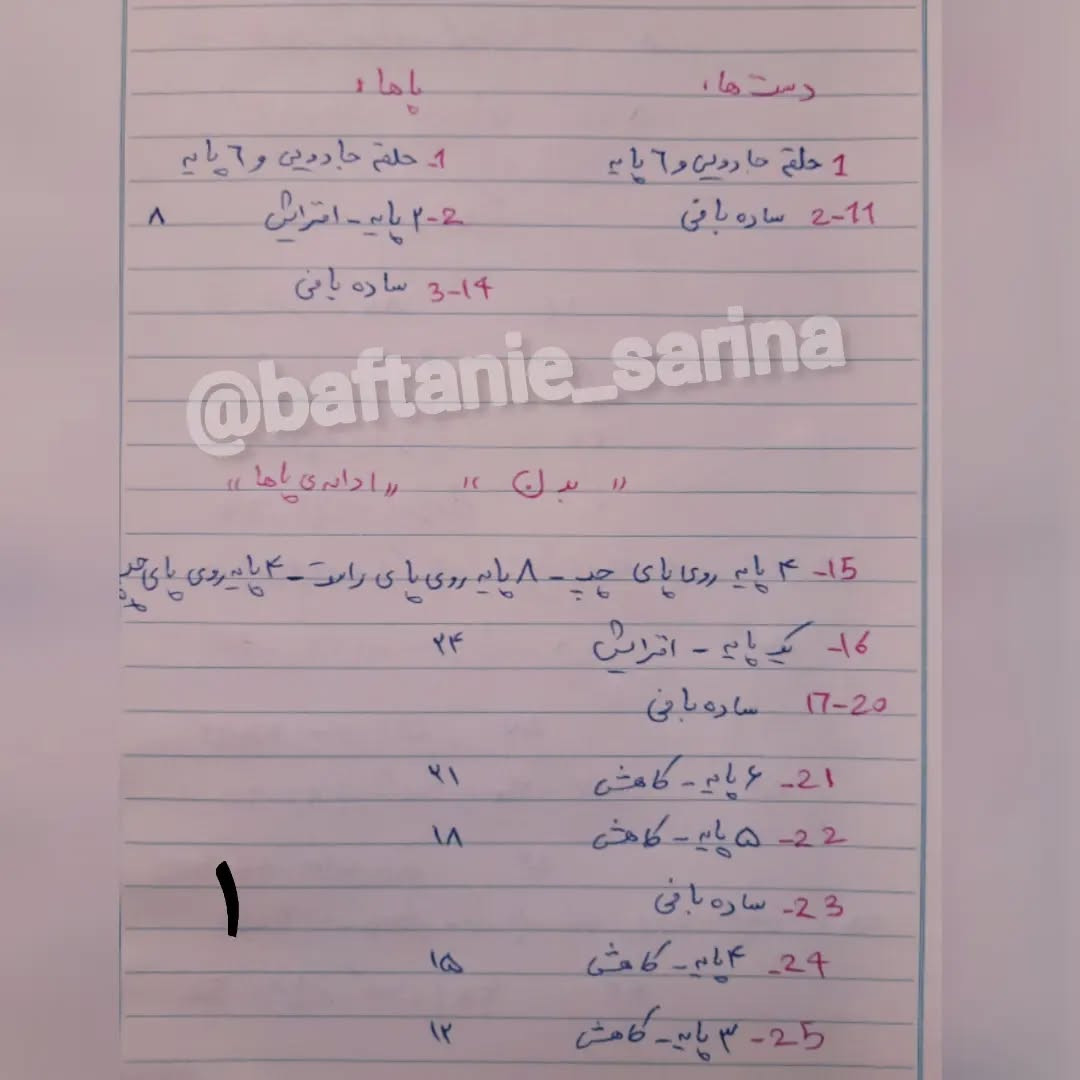 دست ها،	پاها،
1 حلقه جادویی و ٦ پایه	1- حلقه جادویی و ٦ پایه
2-11 ساده بافی	2-۲ پایه - افزایش	۸
3-14 ساده بافی
@baftanie_sarina
"بدن"	"ادامه‌ی پاها"
15- ۴ پایه روی پای چپ - ۸ پایه روی پای راست - ۴ پایه روی پای چپ
16- یک پایه - افزایش	۲۴
17-20 ساده بافی
21- ۶ پایه - کاهش	۲۱
22- ۵ پایه - کاهش	۱۸
23- ساده بافی
۱
24- ۴ پایه - کاهش	۱۵
25- ۳ پایه - کاهش	۱۲